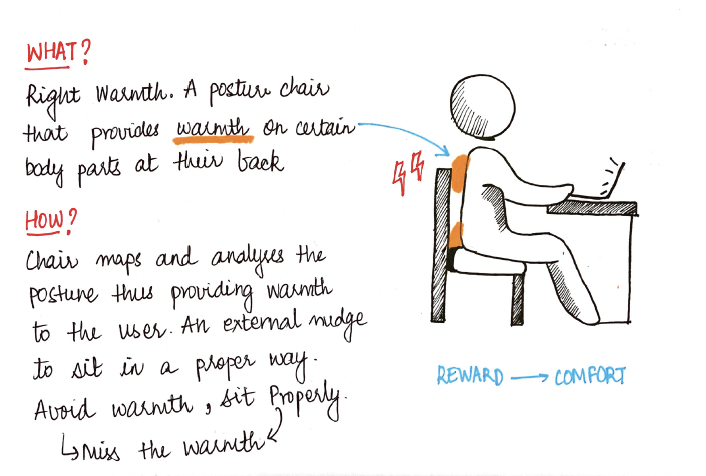 WHAT?
Right Warmth. A posture chair
that provides warmth on certain
body parts at their back
HOW?
Chair maps and analyses the
posture thus providing warmth
to the user. An external nudge
to sit in a proper way.
Avoid warmth, sit Properly.
↳Miss the warmth
REWARD → COMFORT